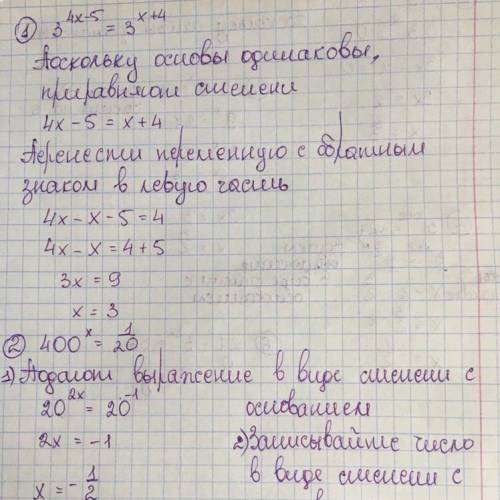 ① 3^(4x-5) = 3^(x+4)
Поскольку основы одинаковы,
приравняем степени
4x - 5 = x + 4
Перенести переменную с обратным
знаком в левую часть
4x - x - 5 = 4
4x - x = 4 + 5
3x = 9
x = 3
② 400^x = 1/20
1) Подаём выражение в виде степени с
основанием
20^(2x) = 20^(-1)
2x = -1
x = - 1/2
2) Записывайте число
в виде степени с